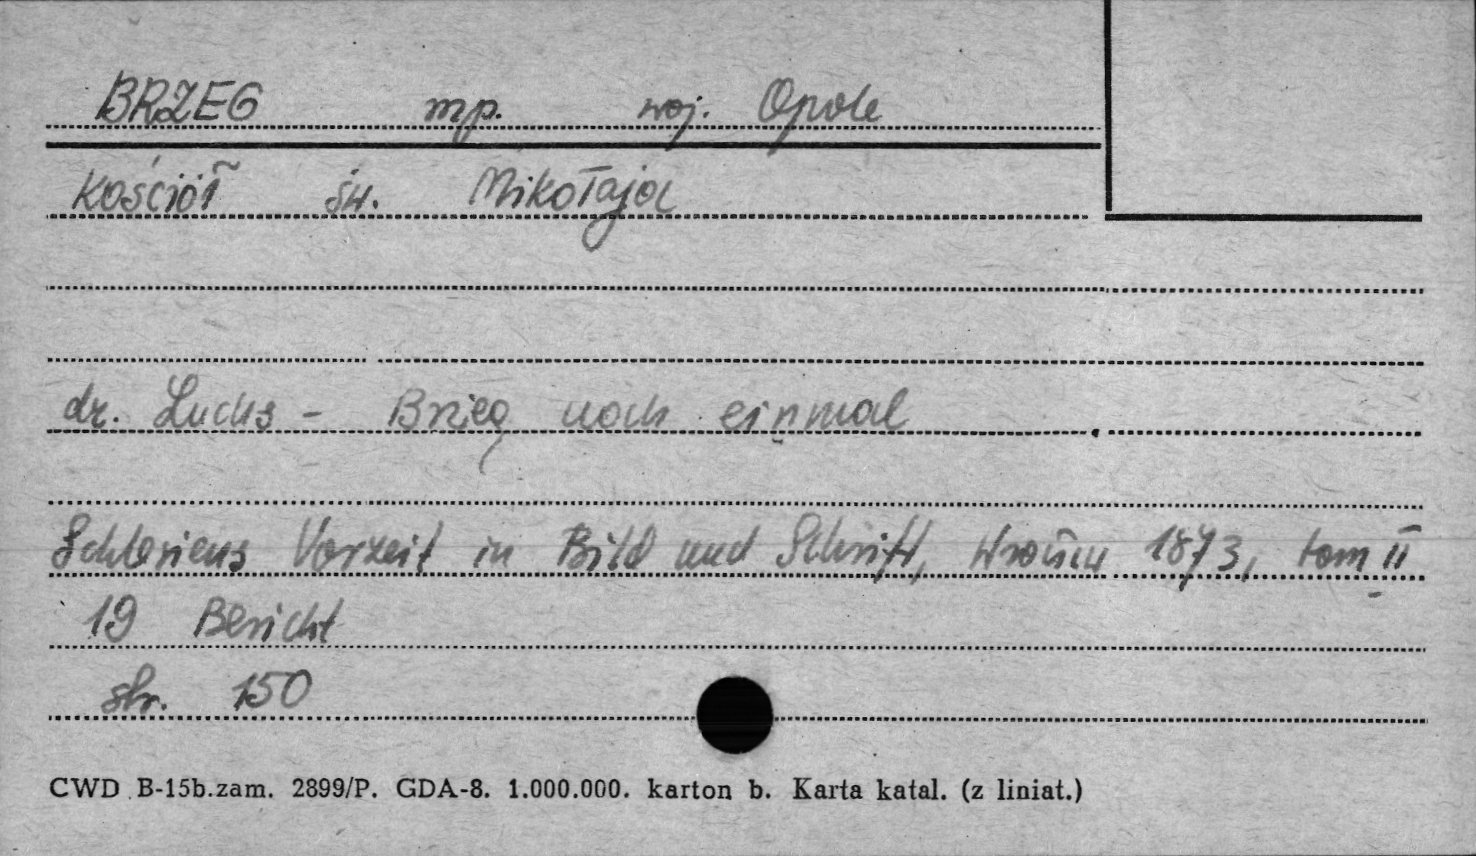 BRZEG mp. woj. Opole
Kościół św. Mikołaja
dr. Luchs - Brieg noch einmal
Schlesiens Vorzeit in Bild und Schrift, 1873, tom II
19 Bericht
str. 150
CWD B-15b.zam. 2899/P. GDA-8. 1.000.000. karton b. Karta katal. (z liniat.)